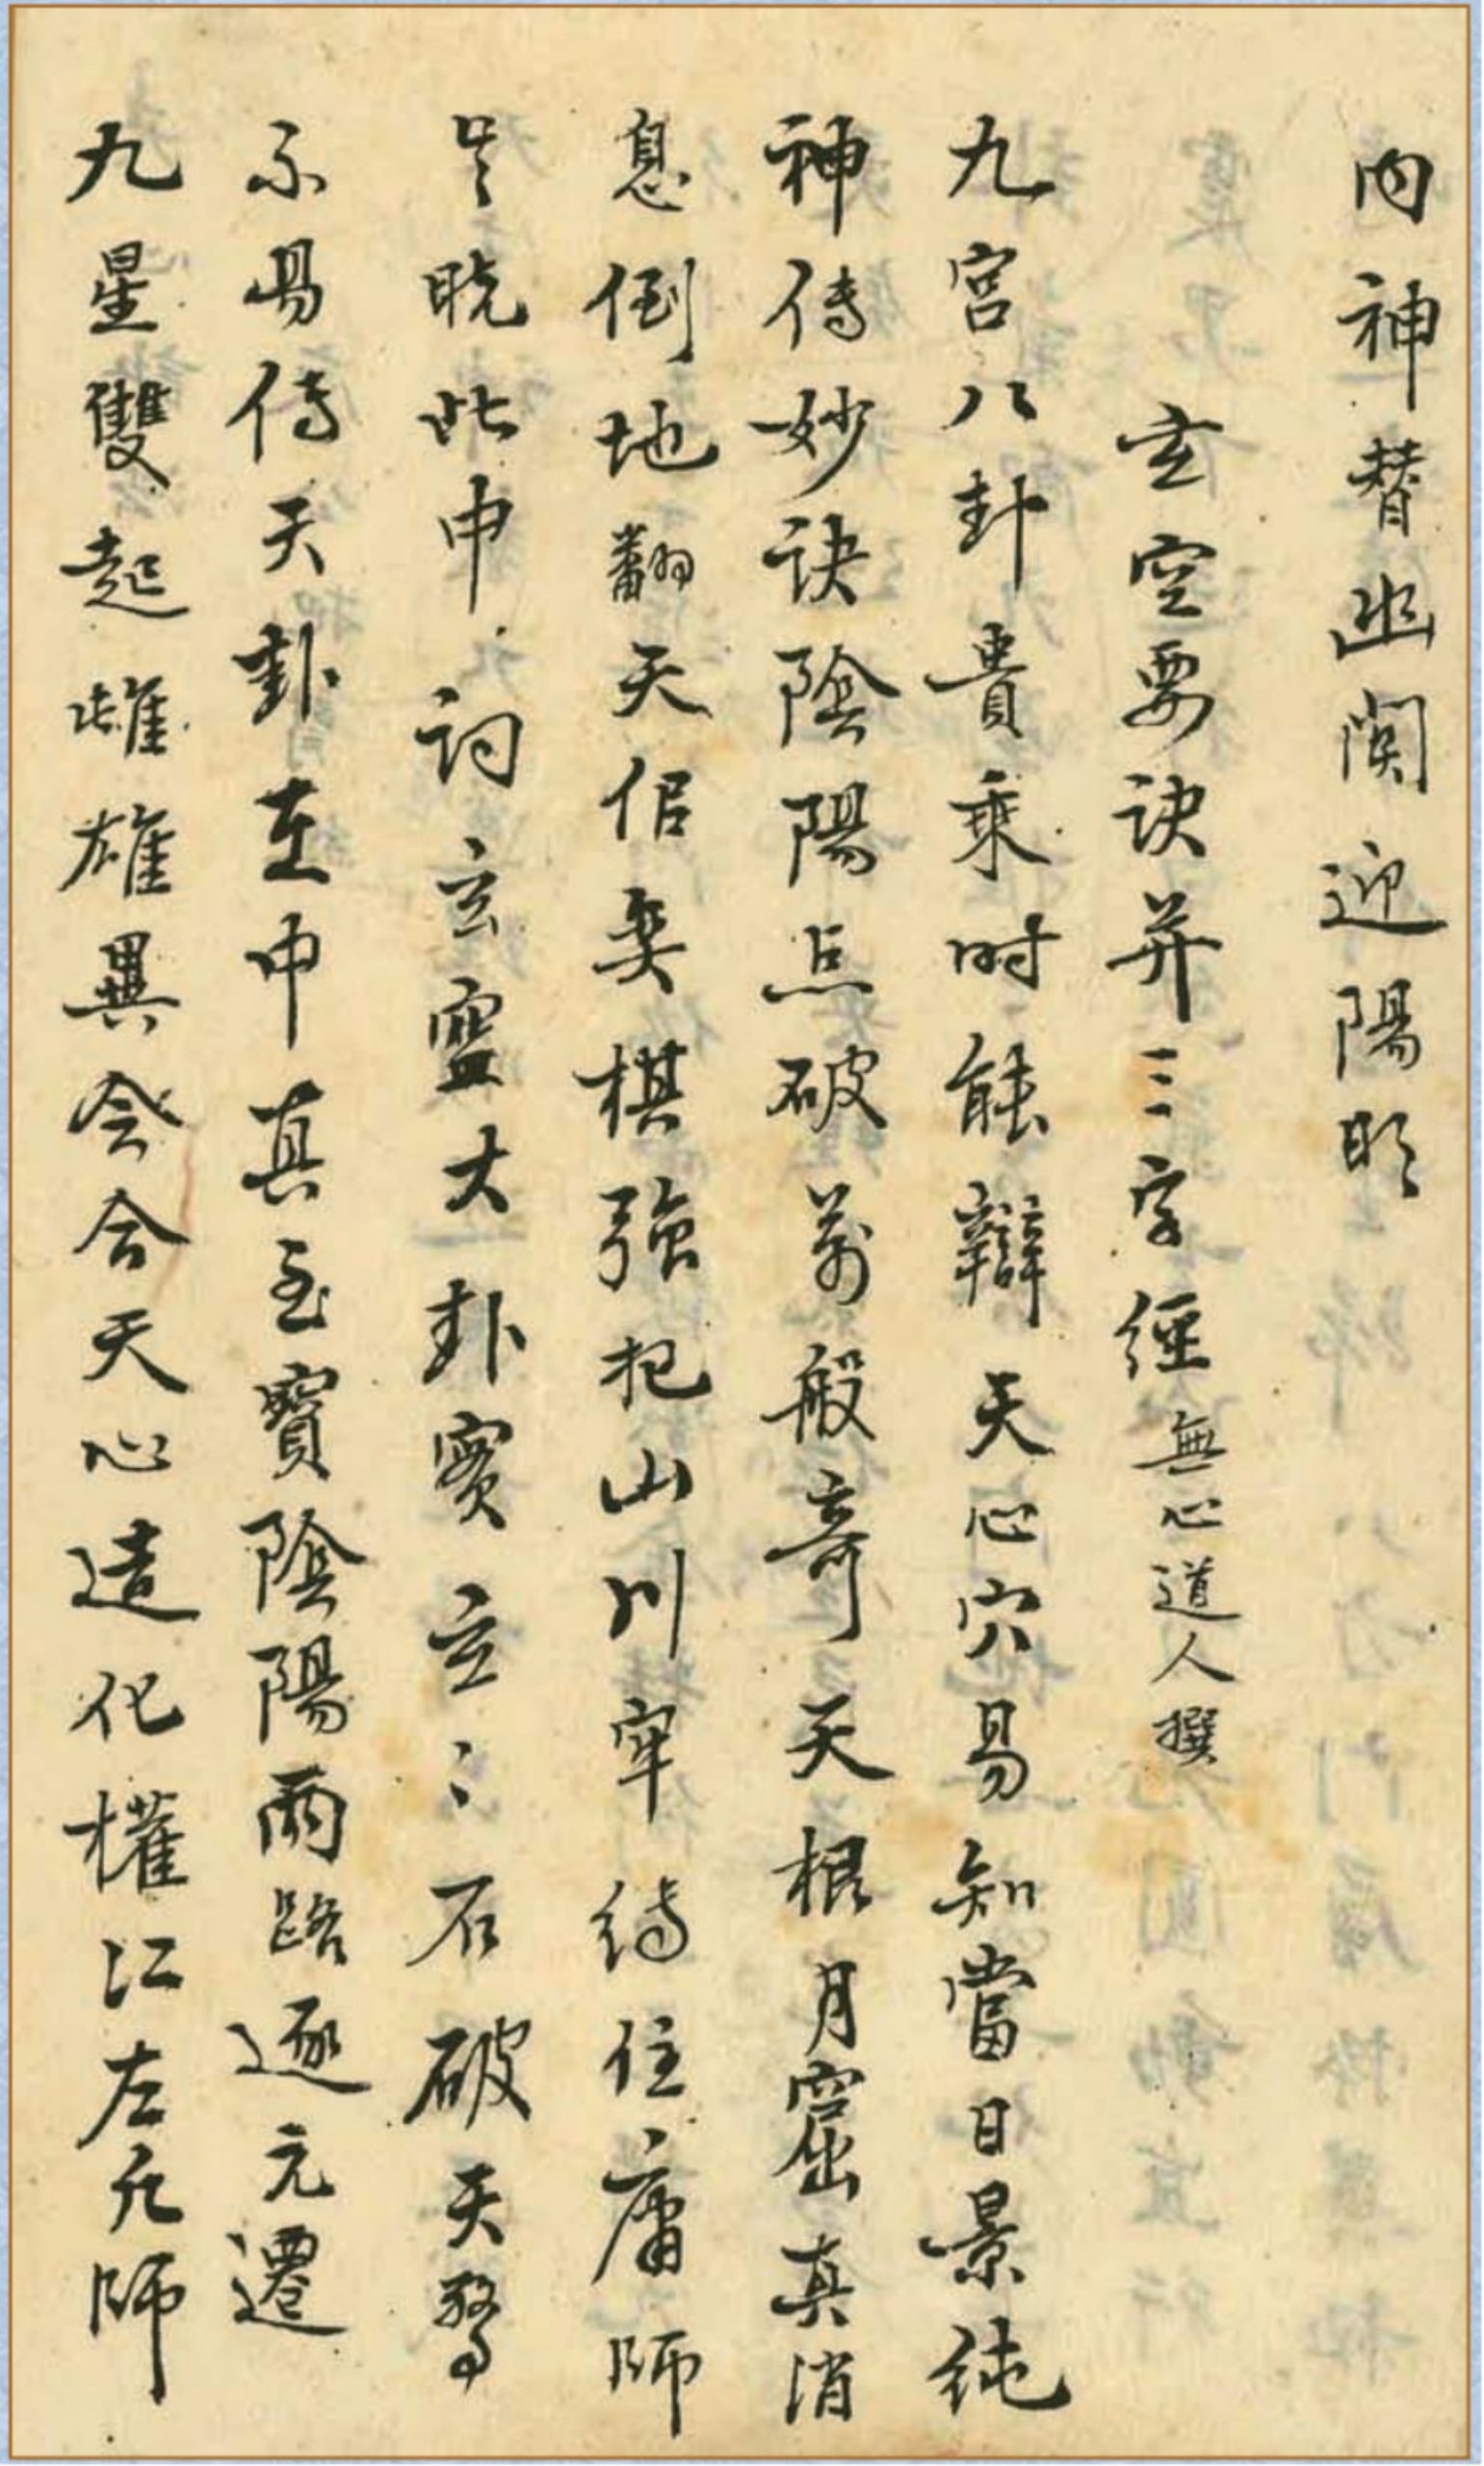 內神替出闗迎陽明
玄空要訣并三字經 無心道人撰
九宮八卦貴乘时能辯天心穴易知當日景純
神傳妙訣陰陽点破萬般奇天根月窟真消
息倒地翻天侶奕棋強把山川牢縛住庸師
吴暁此中詞玄空大卦實玄〻石破天驚
不易传天卦在中真至寳陰陽兩路逐元遷
九星雙起雌雄異会合天心造化權江左几師